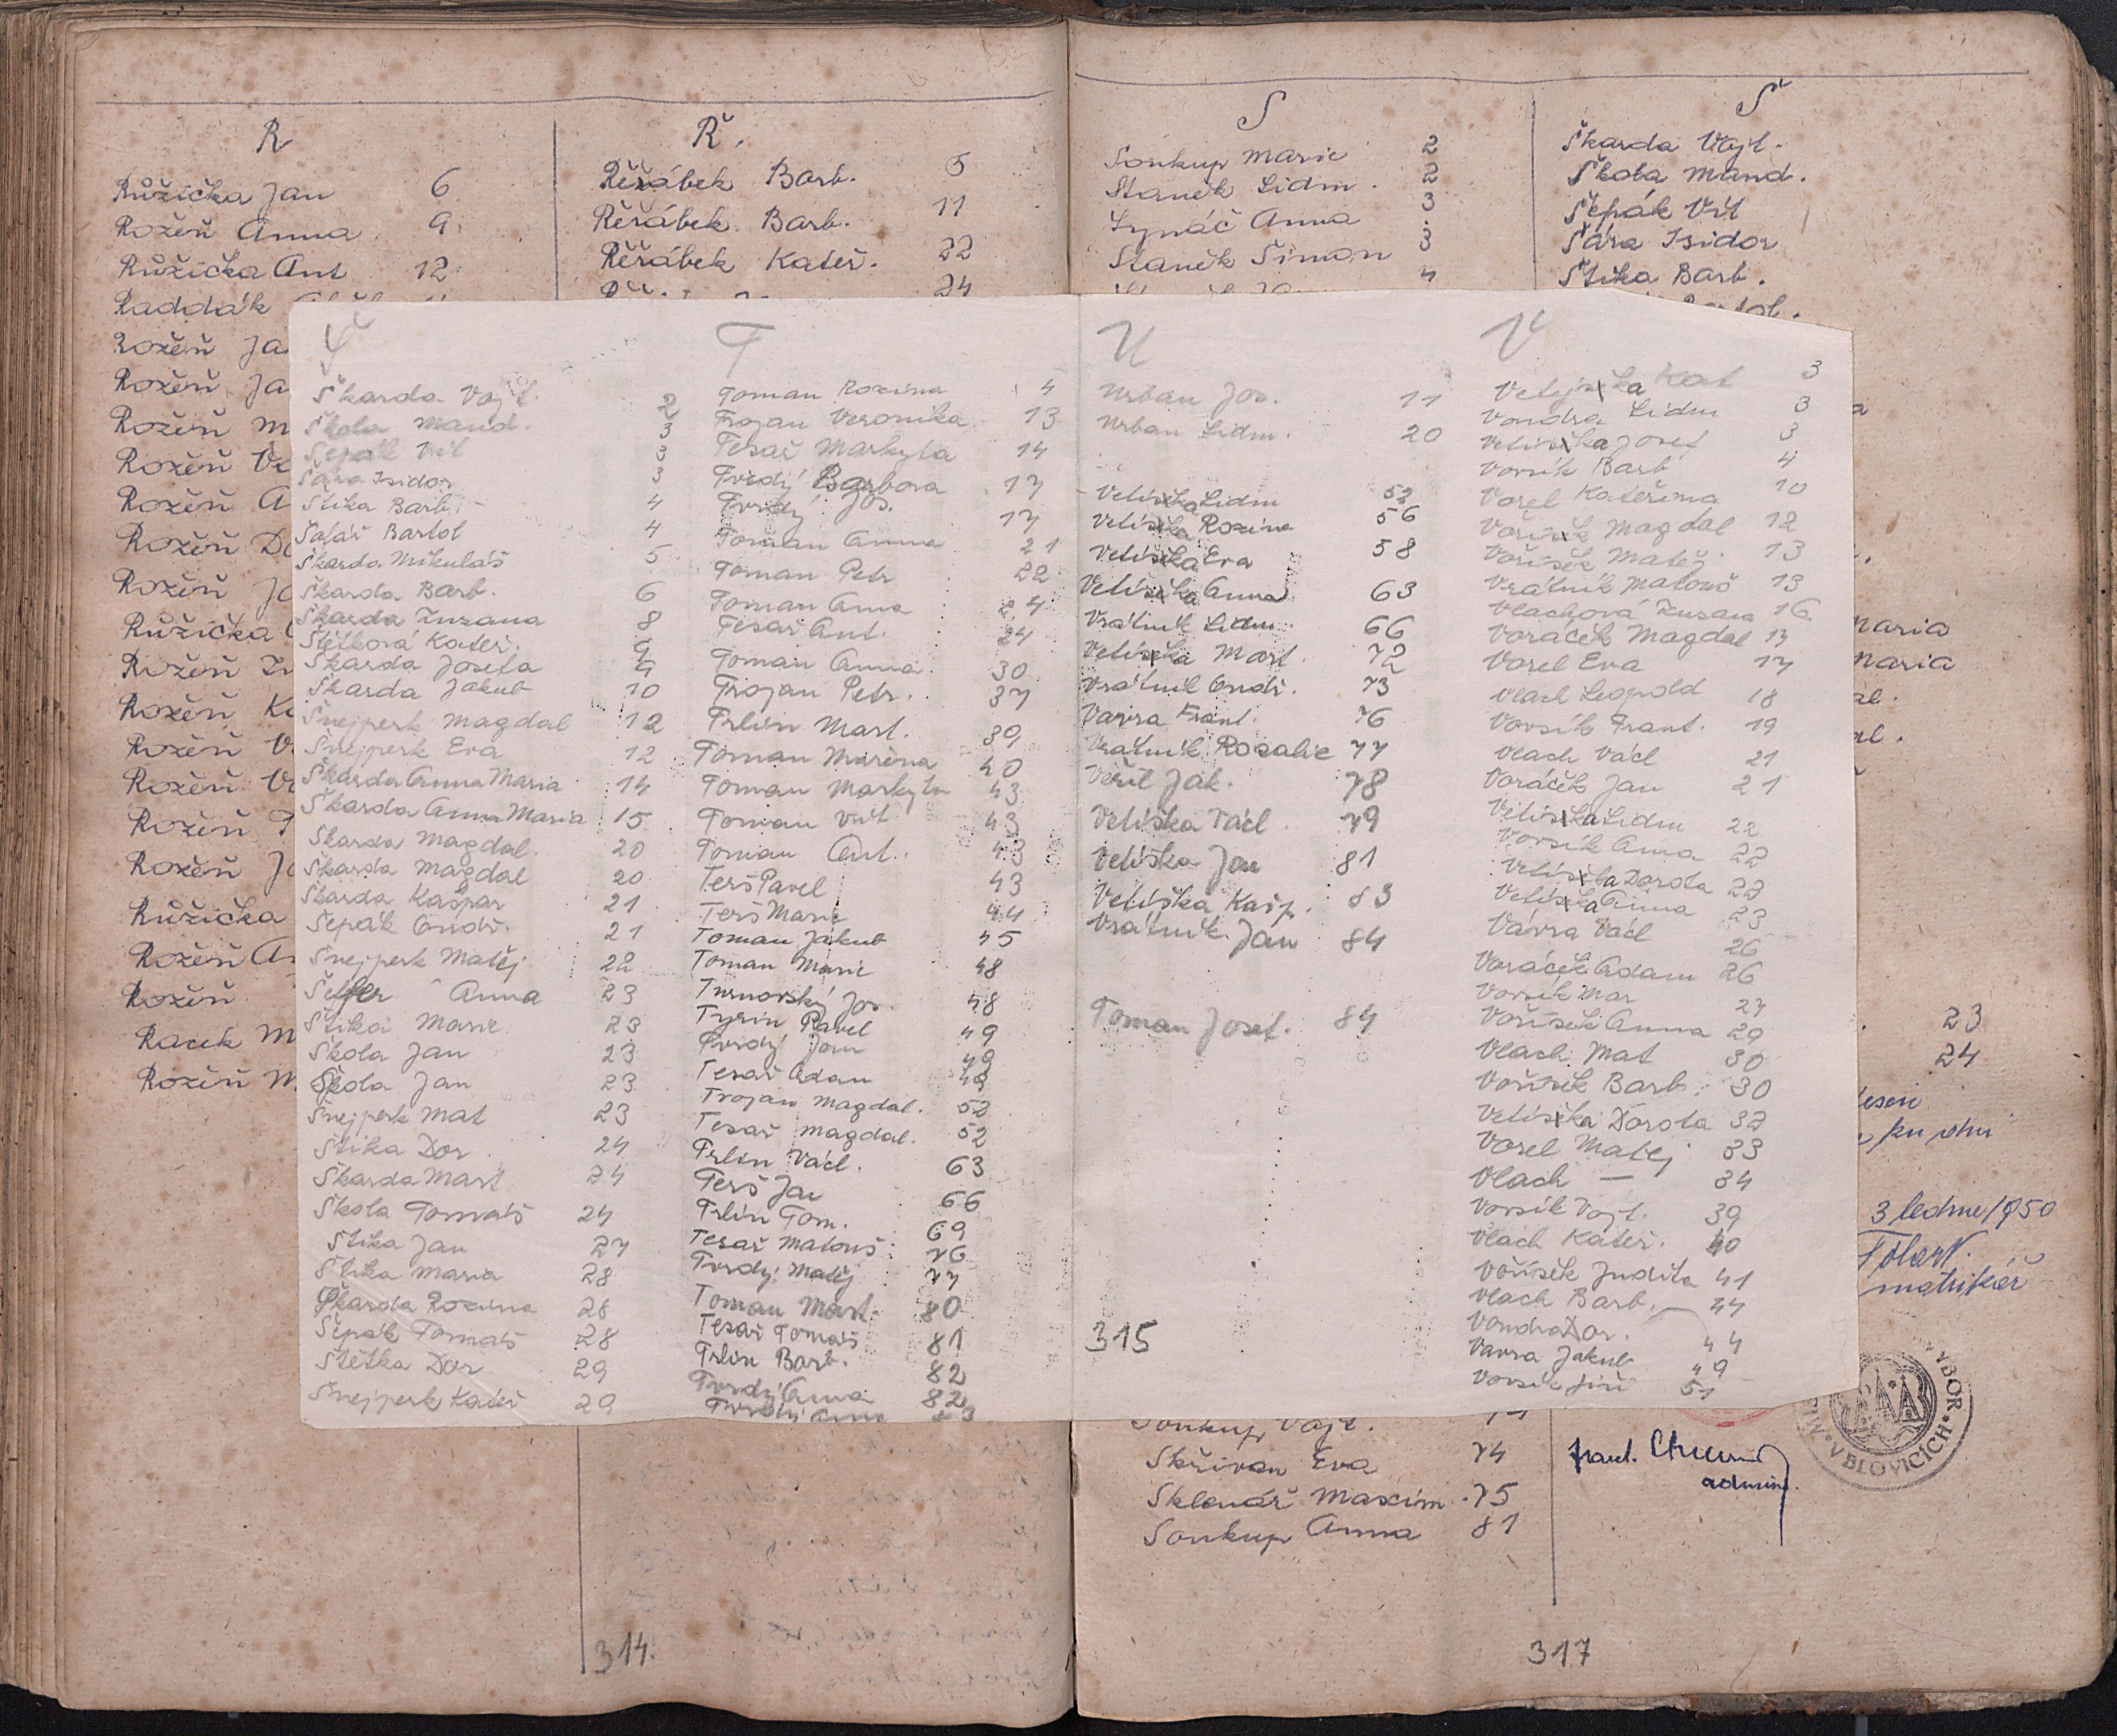 R
Růžička Jan 6
Rožěň Anna 9
Růžička Ant 12
Raddák
Rožěň Ja
Rožěň Ja
Rožěň M
Rožěň Ve
Rožěň A
Rožěň Do
Rožěň Jo
Růžička
Rožěň
Rožěň K
Rožěň V
Rožěň Ve
Rožěň
Rožěň Jo
Růžička
Rožěň An
Rožěň
Racek M
Rožěň M
Ř.
Řeřábek Barb. 5
Řeřábek Barb. 11
Řeřábek Kateř. 22
24
314.
Š
Škarda Vojt. 2
Škola Mand. 3
Šepák Vít 3
Šára Isidor 3
Štika Barb. 4
Šafář Bartol 4
Škarda Mikuláš 5
Škarda Barb. 6
Škarda Zuzana 8
Štětková Kateř. 9
Škarda Josefa 9
Škarda Jakub 10
Šnejperk Magdal 12
Šnejperk Eva 12
Škarda Anna Maria 14
Škarda Anna Maria 15
Škarda Magdal. 20
Škarda Magdal 20
Škarda Kašpar 21
Šepák Ondř. 21
Šnejperk Matěj 22
Anna 23
Štika Marie 23
Škola Jan 23
Škola Jan 23
Šnejperk Mat 23
Štika Dor 24
Škarda Mart 24
Škola Tomáš 24
Štika Jan 27
Štika Maria 28
Škarda Rozina 28
Šepák Tomáš 28
Štětka Dor 29
Šnejperk Kateř 29
T
Toman Rozina 4
Trojan Veronika 13
Tesař Markyta 14
Tvrdý Barbora 17
Tvrdý Jos. 17
Toman Anna 21
Toman Petr 22
Toman Anna 24
Tesař Ant. 24
Toman Anna 30
Trojan Petr. 37
Trlin Mart. 39
Toman Mařena 40
Toman Markyta 43
Toman Vít 43
Toman Ant. 43
Terš Pavel 43
Terš Marie 44
Toman Jakub 45
Toman Marie 48
Turnovský Jos. 48
Tyrin Pavel 49
Tvrdý Jan 49
Tesař Adam 49
Trojan Magdal. 52
Tesař Magdal. 52
Trlin Václ. 63
Terš Jan 66
Trlin Tom. 69
Tesař Matouš 76
Tvrdý Matěj 77
Toman Mart. 80
Tesař Tomáš 81
Trlin Barb. 82
Tvrdý Anna 82
Tvrdý Anna
U
Urban Jos. 11
Urban Lidm. 20
Veliška Lidm 52
Veliška Rozina 56
Veliška Eva 58
Veliška Anna 63
Vrátník Lidm. 66
Veliška Mart. 72
Vrátník Ondř. 73
Vavra Frant. 76
Vrátník Rozalie 77
Veřil Jak. 78
Veliška Václ. 79
Veliška Jan 81
Veliška Kašp. 83
Vrátník Jan 84
Toman Josef. 84
315
V
Kat 3
Vondra Lidm 3
Veliška Josef 3
Vovsík Barb 4
Vorel Kateřina 10
Voříšek Magdal 12
Voříšek Matěj 13
Vrátník Matouš 13
Vlachová Zuzana 16
Voráček Magdal 17
Vorel Eva 17
Vlach Leopold 18
Vovsík Frant. 19
Vlach Václ 21
Voráček Jan 21
Veliška Lidm 22
Vovsík Anna 22
Veliška Dorota 22
Veliška Anna 23
Vávra Václ 26
Voráček Adam 26
Vovsík Mar 27
Voříšek Anna 29
Vlach Mat 30
Voříšek Barb. 30
Veliška Dorota 32
Vorel Matěj 33
Vlach — 34
Vovsík Vojt. 39
Vlach Kateř. 40
Voříšek Judita 41
Vlach Barb. 44
Vondra Dor. 44
Vavra Jakub 49
Vovsík Jiří 51
S
Soukup Marie 2
Staněk Lidm. 2
Synáč Anna 3
Staněk Šimon 3
4
Soukup Vojt.
Skřivan Eva 74
Sklenář Maxim. 75
Soukup Anna 81
Š
Škarda Vojt.
Škola Mand.
Šepák Vít
Šára Isidor
Štika Barb.
Maria
Maria
23
24
ku dni
3 ledna 1950
matrikář
frant.
admin.
VÝBOR
V BLOVICÍCH
317